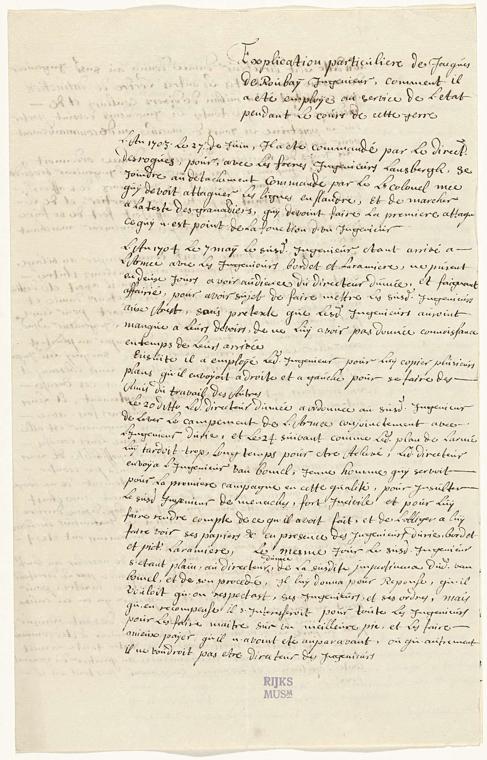 Explication particuliere de Jacques
de Roubaÿ Ingenieur, comment il
a eté employé au service de L'etat
pendant le cours de cette gerre
L'An 1703 Le 27 de Juin, Il a eté commandé par Le direct.
desroques, pour, avec Les freres Ingenieurs Lansbergh, se
Joindre au detachement commandé par Le Lt colonel mee
quy devoit attaquer les lignes en flandre, et de marcher
a La teste des granadiers, quy devoint faire La premiere attaque
ce quy n'est point de La fonction d'un Ingenieur
L'An 1704 Le 7 maÿ Le susd. Ingenieur etant arrivé a
L'Armée avec Les Ingenieurs bordet et Laramiere, ne purent
en deux Jours avoir audience du directeur dumée, et faignant
affairié, pour avoir sujet de faire mettre Les susd. Ingenieurs
aux Arest, sous pretexte que Lesd. Ingenieurs auroint
manqué a Leurs devoirs, de ne Luÿ avoir pas donnée connoissance
en temps de Leurs arrivée
Ensuitte il a employé Led. Ingenieur pour Luÿ copier plusieurs
plans qu'il envoÿoit a droite et a gauche pour se faire des
Amis du travail des Autres
Le 20 ditto Led directeur dumée a ordonnée au susd. Ingenieur
de Lever Le campement de L'Armée conjointement avec
L'Ingenieur durie, et Le 24 suivant comme Led. plan de L'armée
Luÿ tardoit trop Long temps pour etre Achevé, Led directeur
envoÿa L'Ingenieur van boucel, Jeune homme quy servoit
pour La premiere campagne en cette qualité, pour Insulter
Le susd Ingenieur de menaches, fort Incivile et pour Luÿ
faire rendre compte de ce qu'il avoit fait, et de L'obliger a Luÿ
faire voir ses papiers en presence des Ingenieurs durie, bordet
et Laramiere, Le mesme Jour Le susd Ingenieur
dumée
s'etant plain, au directeur, de La susdite impudence dud. van
boucel, et de son procedé, Il Luÿ donna pour Reponse, qu'il
vouloit qu'on respectast, ses Ingenieurs, et ses ordres, mais
qu'en recompense il s'interesseroit pour toute Les Ingenieurs
pour Les faire maitre sur un meilleure pie, et Les faire
mieux païer qu'il n'avoint eté auparavant, ou qu'autrement
Il ne voudroit pas etre directeur des Ingenieurs
RIJKS
MUSM